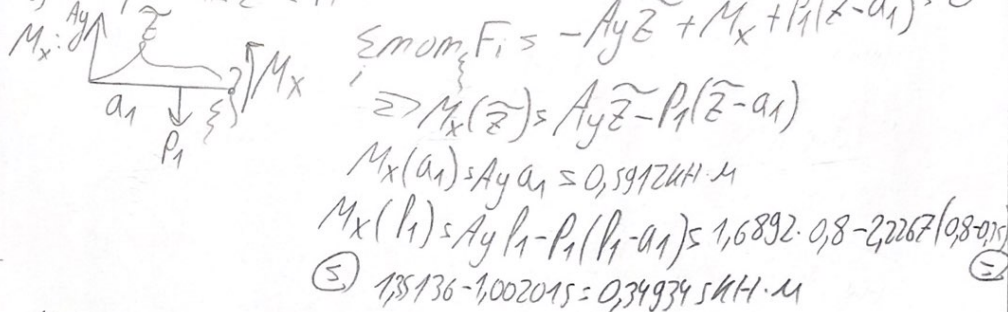 Ay
z̃
Mₓ:
Mₓ
a₁
ξ
P₁
Σmom_ξ Fᵢ = -Ay z̃ + Mₓ + P₁(z̃-a₁) = 0
i
=> Mₓ(z̃) = Ay z̃ - P₁(z̃-a₁)
Mₓ(a₁) = Ay a₁ = 0,5912 кН·м
Mₓ(l₁) = Ay l₁ - P₁(l₁-a₁) = 1,6892·0,8-2,2267(0,8-0,35) =
= 1,35136-1,002015=0,349345 кН·м